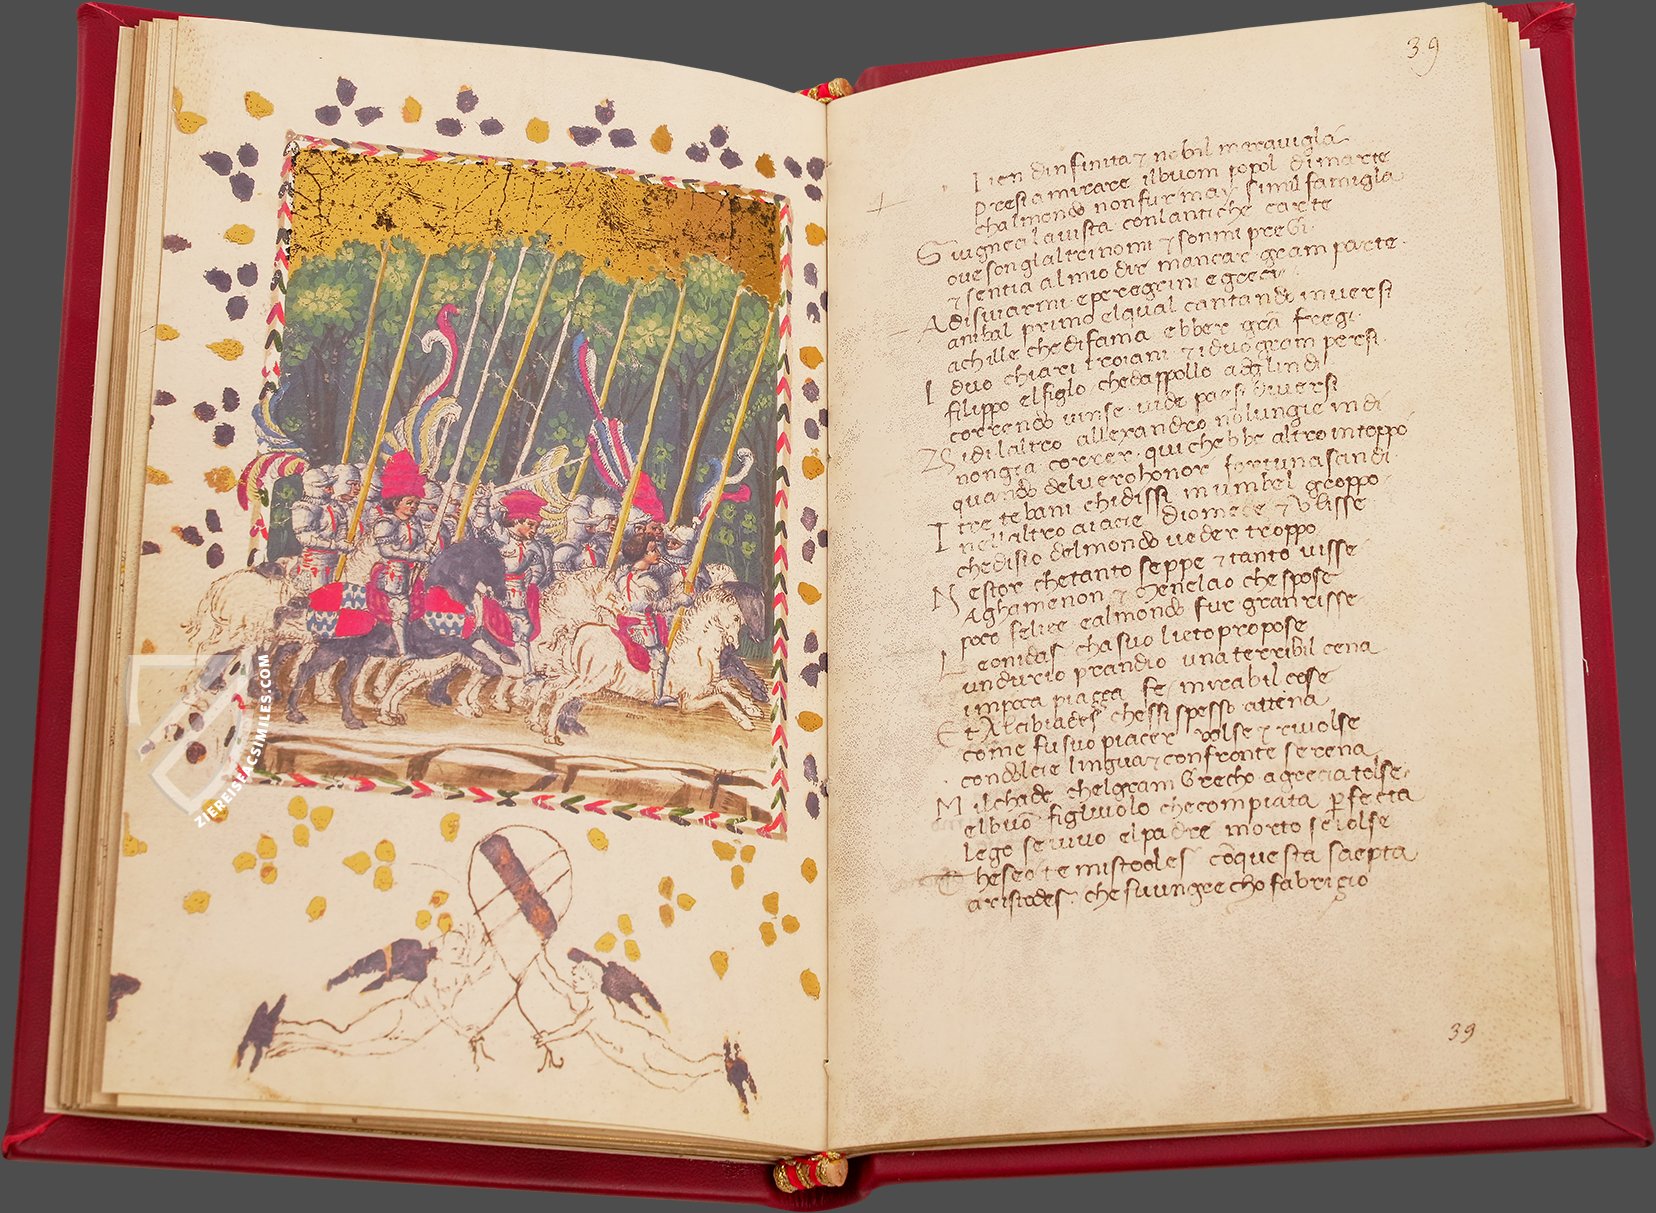 ZIEREISFACSIMILES.COM
39
Pien dinfinita & nobil maraviglia
Presi a mirare il buom popol di marte
chal mondo non fur may simil famiglia
Giugnea la vista con lantiche carte
ove son glaltri nomi & sommi pregi
& sentia al mio dir mancar gram parte
A disviarmi e peregrini egreci
anibal primo el qual cantando in versi
achille che di fama ebber grã fregi
I duo chiari troiani & i duo gram persi
filippo el figlo che da ppollo
correndo vinse vide paesi diversi
Vidi laltro allexandro nõ lungie indi
non gia correr qui chebbe altro intoppo
quando del vero honor fortuna scindi
I tre tebani chi dissi in um bel groppo
nell altro aiacie diomede & Vlisse
che disio del mondo veder troppo
Nestor che tanto seppe & tanto visse
Aghamenon & Menelao che spose
poco felice al mondo fur gran risse
Leonidas cha suo lieto propose
un durio prandio una terribil cena
im poca piacca fe mirabil cose
Et Alcibiades chessi spesso attena
come fu suo piacer volse & rivolse
con dolcie lingua & con fronte serena
Milchade chel gram Grecho a grecia tolse
el buõ figluiolo che com piata perfecta
lego se vivo el padre morto sciolse
Theseo temistocles cõ questa saepta
aristides che fu un grecho fabrigio
39